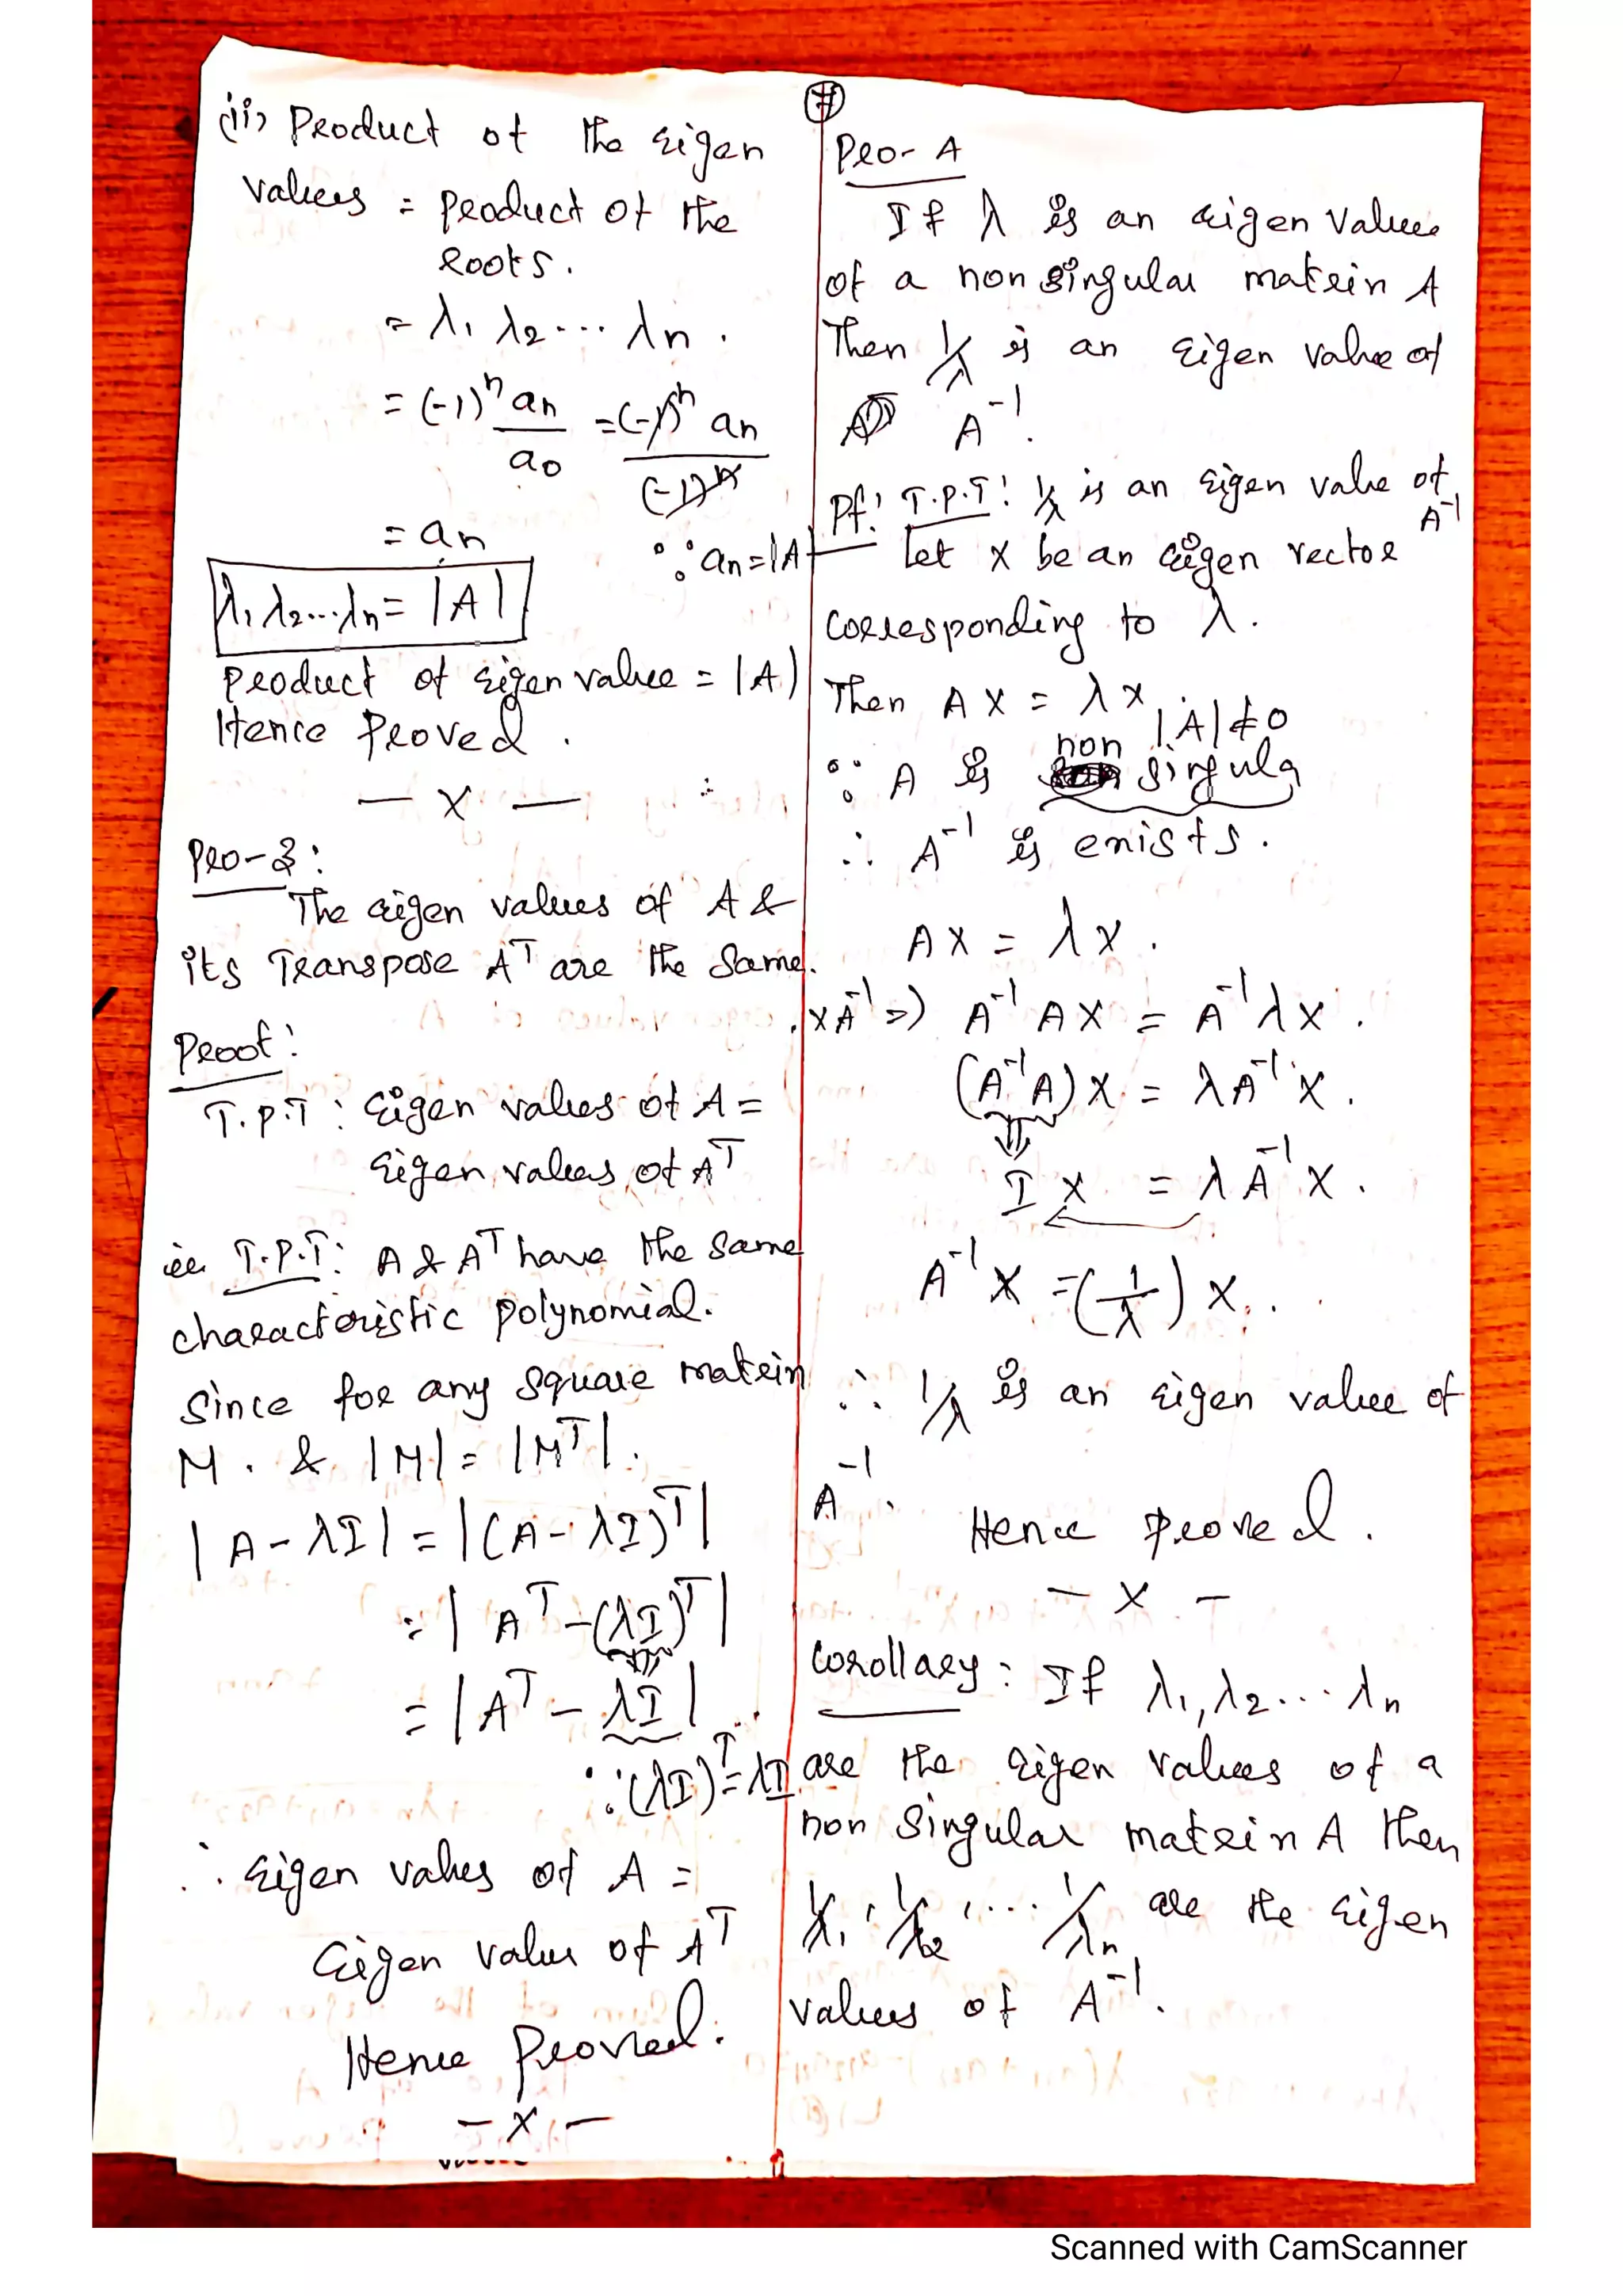 (ii) Product of the eigen
values = product of the
roots.
= λ₁ λ₂ ... λn .
= (-1)ⁿ an / a0 = (-1)ⁿ an / (-1)ⁿ
= an
∵ an = |A|
λ₁ λ₂ ... λn = |A|
product of eigen value = |A|
Hence Proved .
— x —
Pro-3 :
The eigen values of A &
its Transpose Aᵀ are the same.
Proof :
T.P.T : eigen values of A =
eigen values of Aᵀ
ie T.P.T : A & Aᵀ have the same
characteristic polynomial.
Since for any square matrix
M . & |M| = |Mᵀ| .
|A - λI| = |(A - λI)ᵀ|
= |Aᵀ - (λI)ᵀ|
= |Aᵀ - λI|
∵ (λI)ᵀ = λI
∴ eigen values of A =
eigen value of Aᵀ
Hence Proved.
— x —
7
Pro- 4
If λ is an eigen value
of a non singular matrix A
Then 1/λ is an eigen value of
A⁻¹.
Pf: T.P.T : 1/λ is an eigen value of
A⁻¹
Let X be an eigen vector
corresponding to λ .
Then AX = λX
|A| ≠ 0
∵ A is non singula
∴ A⁻¹ is exists .
AX = λX .
x A⁻¹ => A⁻¹ AX = A⁻¹ λX .
(A⁻¹A) X = λA⁻¹X .
I X = λ A⁻¹X .
A⁻¹X = (1/λ) X .
∴ 1/λ is an eigen value of
A⁻¹.
Hence proved .
— x —
Corollary : If λ₁, λ₂ ... λn
are the eigen values of a
non singular matrix A then
1/λ₁, 1/λ₂, ... 1/λn are the eigen
values of A⁻¹.
Scanned with CamScanner